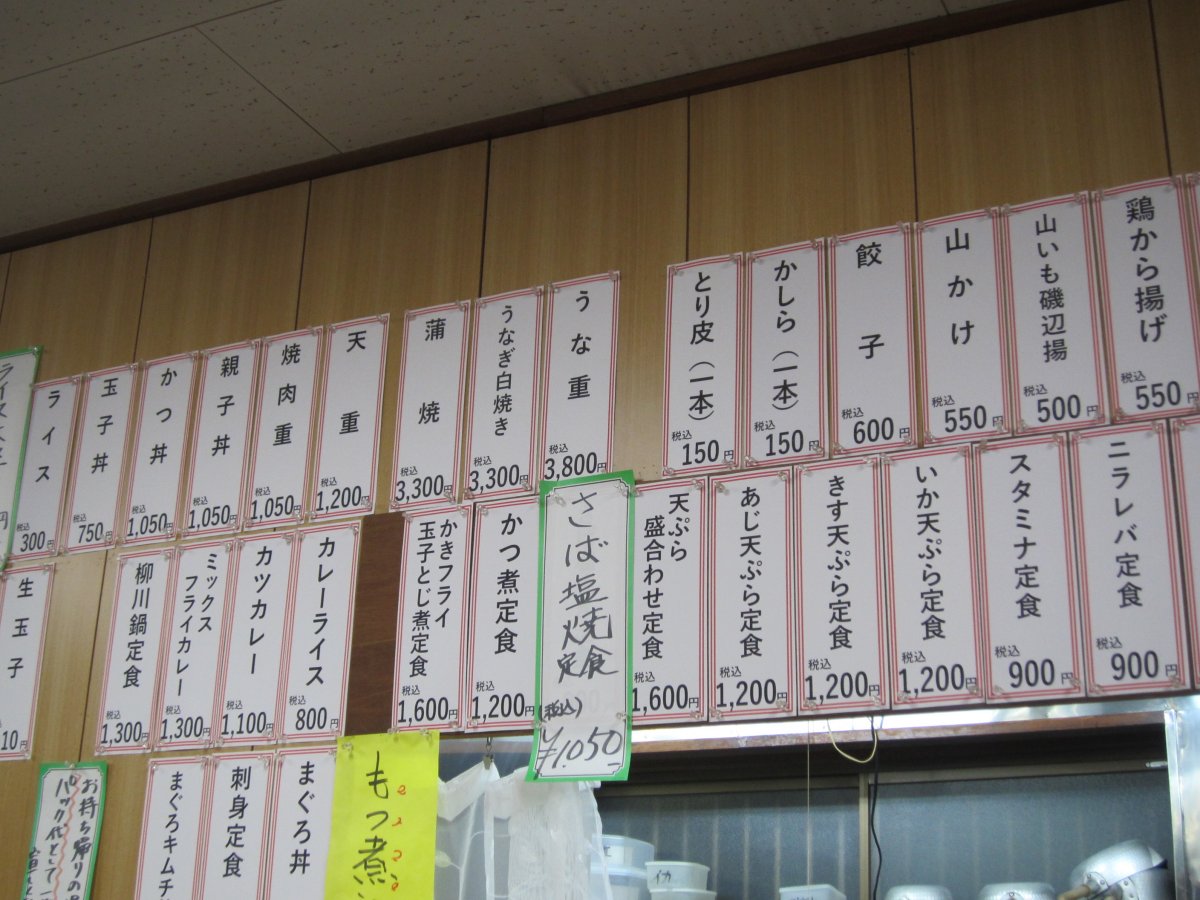 鶏から揚げ
税込
550円
山いも磯辺揚
税込
500円
山かけ
税込
550円
餃子
税込
600円
かしら(一本)
税込
150円
とり皮(一本)
税込
150円
うな重
税込
3,800円
うなぎ白焼き
税込
3,300円
蒲焼
税込
3,300円
天重
税込
1,200円
焼肉重
税込
1,050円
親子丼
税込
1,050円
かつ丼
税込
1,050円
玉子丼
税込
750円
ライス
税込
300円
ニラレバ定食
税込
900円
スタミナ定食
税込
900円
いか天ぷら定食
税込
1,200円
きす天ぷら定食
税込
1,200円
あじ天ぷら定食
税込
1,200円
天ぷら
盛合わせ定食
税込
1,600円
さば塩焼
定食
(税込)
¥1,050
かつ煮定食
税込
1,200円
かきフライ
玉子とじ煮定食
税込
1,600円
カレーライス
税込
800円
カツカレー
税込
1,100円
ミックス
フライカレー
税込
1,300円
柳川鍋定食
税込
1,300円
生玉子
10円
もつ煮
まぐろ丼
刺身定食
まぐろキムチ
お持ち帰りの
パック代として
イカ